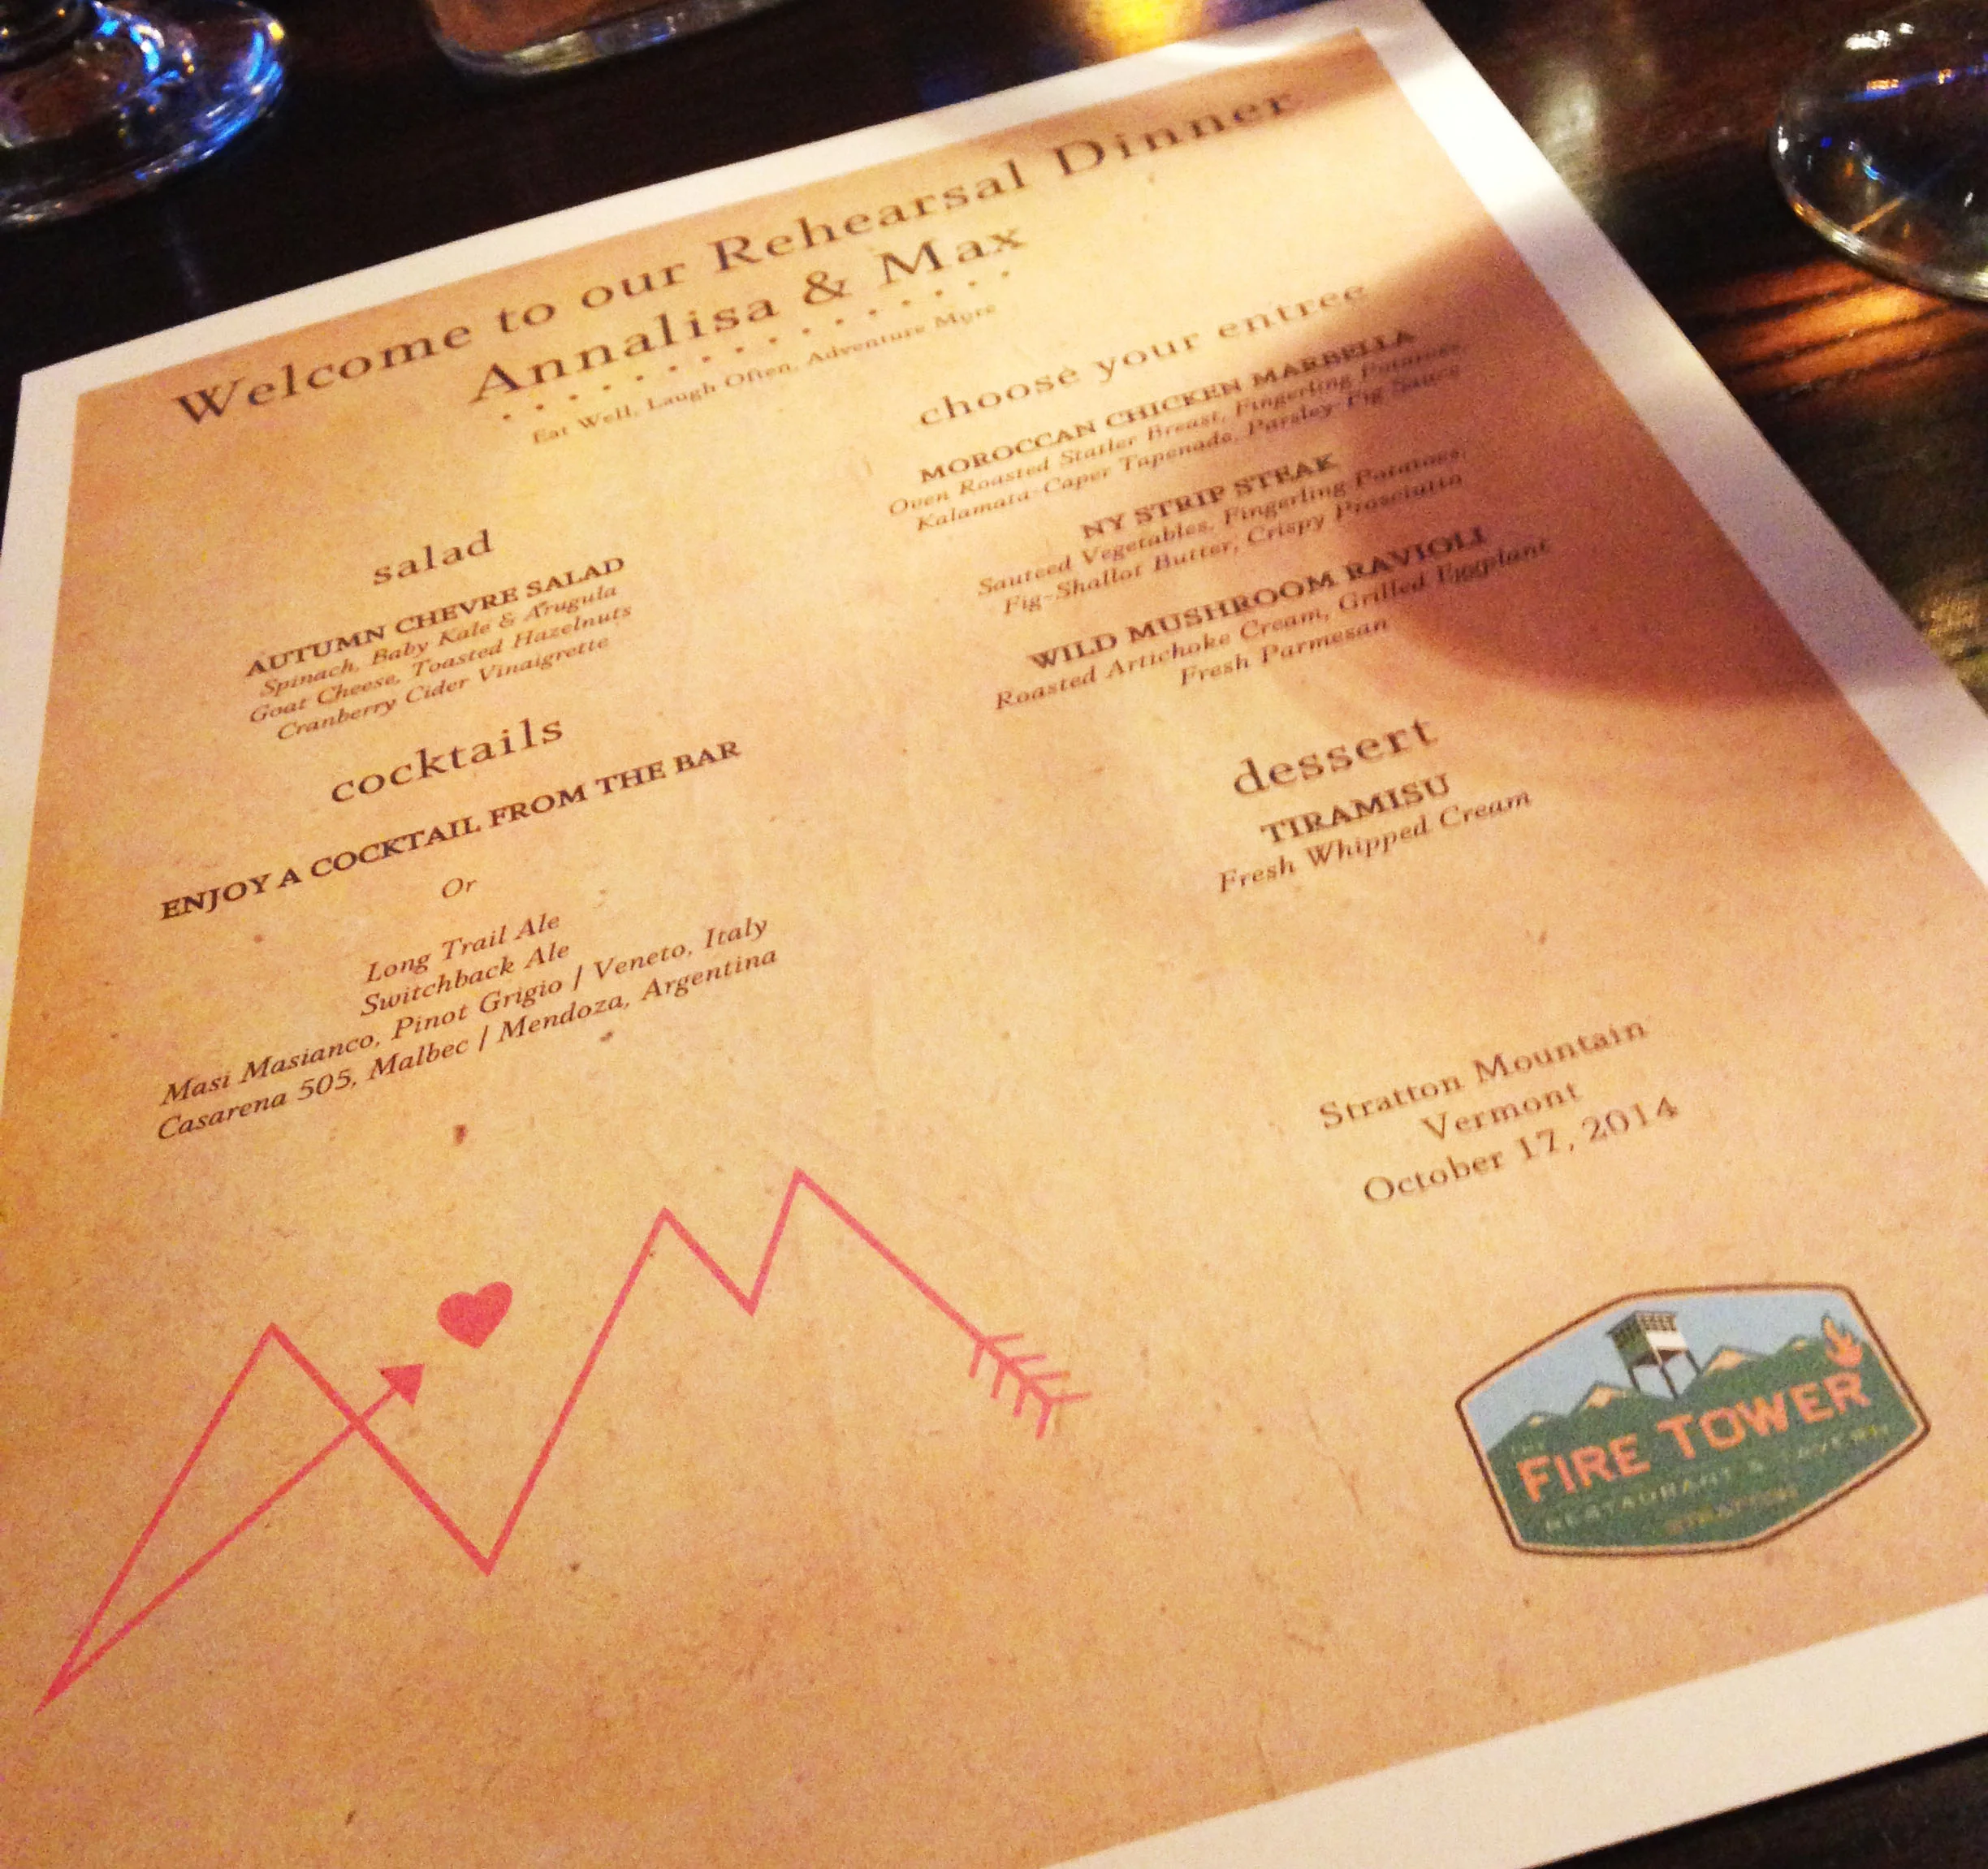 Welcome to our Rehearsal Dinner
Annalisa & Max
Eat Well, Laugh Often, Adventure More
salad
AUTUMN CHEVRE SALAD
Spinach, Baby Kale & Arugula
Goat Cheese, Toasted Hazelnuts
Cranberry Cider Vinaigrette
cocktails
ENJOY A COCKTAIL FROM THE BAR
Or
Long Trail Ale
Switchback Ale
Masi Masianco, Pinot Grigio | Veneto, Italy
Casarena 505, Malbec | Mendoza, Argentina
choose your entree
MOROCCAN CHICKEN MARBELLA
Oven Roasted Statler Breast, Fingerling Potatoes,
Kalamata-Caper Tapenade, Parsley-Fig Sauce
NY STRIP STEAK
Sauteed Vegetables, Fingerling Potatoes,
Fig-Shallot Butter, Crispy Prosciutto
WILD MUSHROOM RAVIOLI
Roasted Artichoke Cream, Grilled Eggplant
Fresh Parmesan
dessert
TIRAMISU
Fresh Whipped Cream
Stratton Mountain
Vermont
October 17, 2014
THE
FIRE TOWER
RESTAURANT & TAVERN
STRATTON